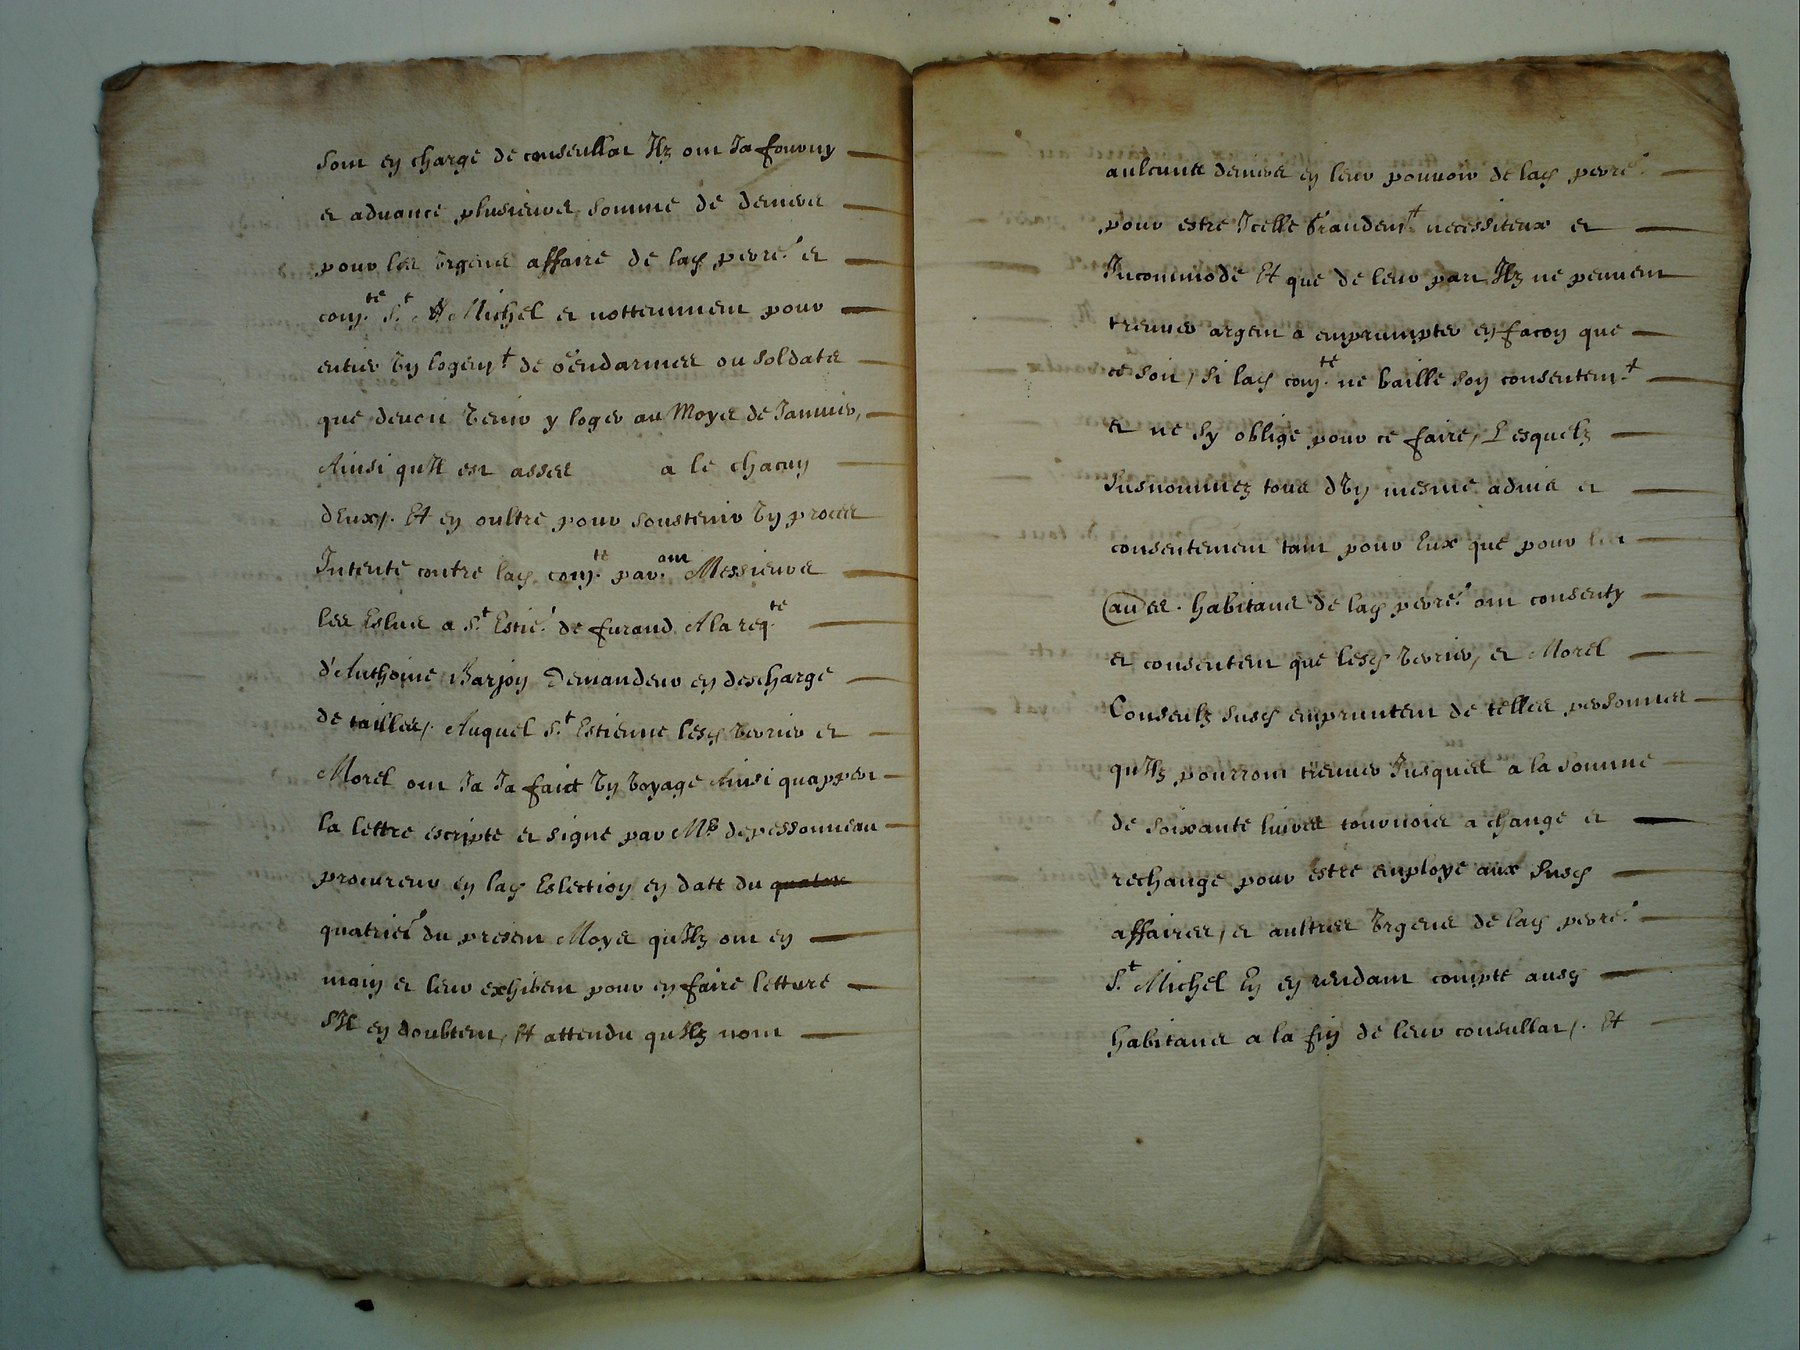 sont en charge de consullat Ilz ont Ja fourny
et advancé plusieurs somme de deniers
pour les Urgens affaire de lad perre. et
con.te S.t Michel et nottemment pour
eviter Un logem.t de Gendarmes ou soldats
que devoit Venir y loger au Moys de Janvier,
Ainsi quil est assés a le chacun
dEux/. Et en oultre pour soustenir Un proces
Intenté contre lad. con.te par.ant Messieurs
les Eslus a S.t Estie. de furand. A la req.te
d'Anthoine Barjon Demandeur en descharge
de tailles/. Auquel S.t Estienne lesd Verrier et
Morel ont Ja Ja faict Un Voyage Ainsi quappert
la lettre escripte et signé par M.e depessonneau
procureur en lad Eslection en datt du quatre
quatrie. du present Moys quIlz ont en
main et leur exhibent pour en faire letture
sIl en doubtent, Et attendu quIlz nont
aulcuns deniers en leur pouvoir de lad perre.
pour estre Icelle Grandem.t necessiteux et
Incommode Et que de leur part Ilz ne peuvent
treuver argent a emprumpter en facon que
ce soit, si lad con.te ne baille son consentem.t
et ne sy oblige pour ce faire, Lesquelz
susnommez tous dUn mesme advis et
consentement tant pour Eux que pour les
au es. habitans de lad perre. ont consenty
et consentent que lesd Verrier, et Morel
Conseulz susd empruntent de telles personnes
quIlz pourront treuver Jusques a la somme
de soixante livres tournois a change et
rechange pour Estre employé aux susd
affaires, et aultres Urgens de lad perre.
S.t Michel En en rendant compte ausd
habitans a la fin de leur consullat/. Et